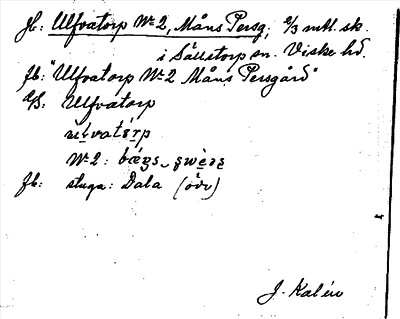 Jb: Ulfvatorp No 2, Måns Persg; 2/3 mtl. sk.
i Sällstorp sn. Viske hd.
Jb: "Ulfvatorp No 2 Måns Persgård"
Ulfvatorp
No 2:
Jb: stuga: Dala (öde)
J. Kalén